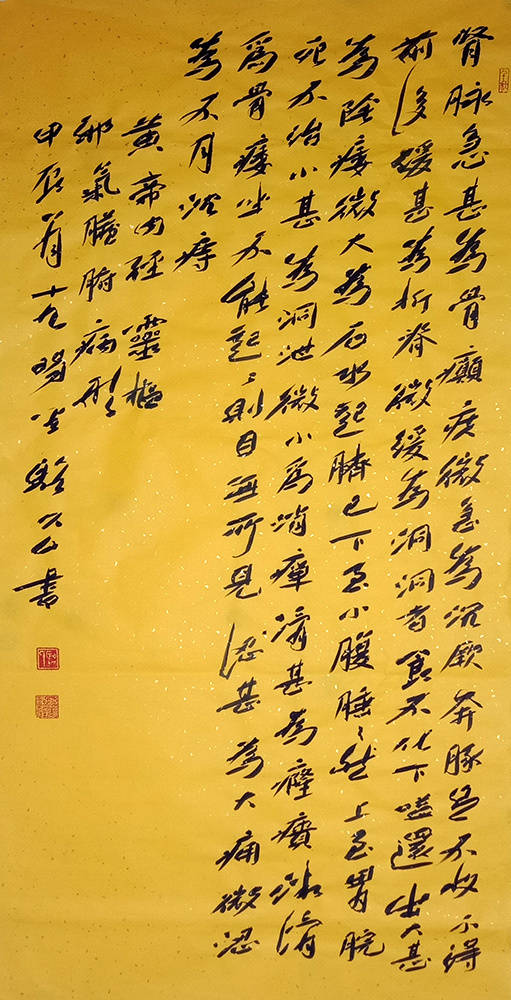 腎脉急甚為骨癲疾微急為沉厥奔豚足不收不得
前後緩甚為折脊微緩為洞洞者食不化下嗌還出大甚
為陰痿微大為石水起臍已下至小腹腄々然上至胃脘
死不治小甚為洞泄微小為消癉濇甚為癃㿉微滑
為骨痿坐不能起々則目無所見濇甚為大痈微澀
為不月沉痔
黃帝内經 靈樞
邪氣臟腑病形
甲辰
十九
書